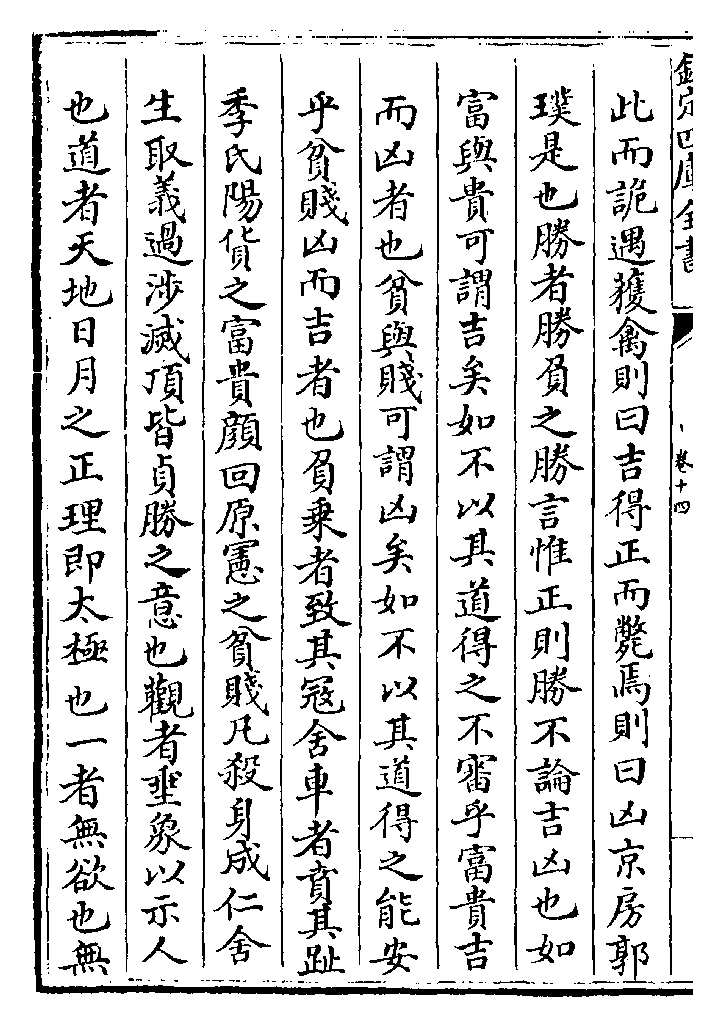 欽定四庫全書
卷十四
此而詭遇獲禽則曰吉得正而斃焉則曰凶京房郭
璞是也勝者勝負之勝言惟正則勝不論吉凶也如
富與貴可謂吉矣如不以其道得之不審乎富貴吉
而凶者也貧與賤可謂凶矣如不以其道得之能安
乎貧賤凶而吉者也負乗者致其冦舍車者賁其趾
季氏陽貨之富貴顔回原憲之貧賤凡殺身成仁舍
生取義過涉滅頂皆貞勝之意也觀者垂象以示人
也道者天地日月之正理即太極也一者無欲也無